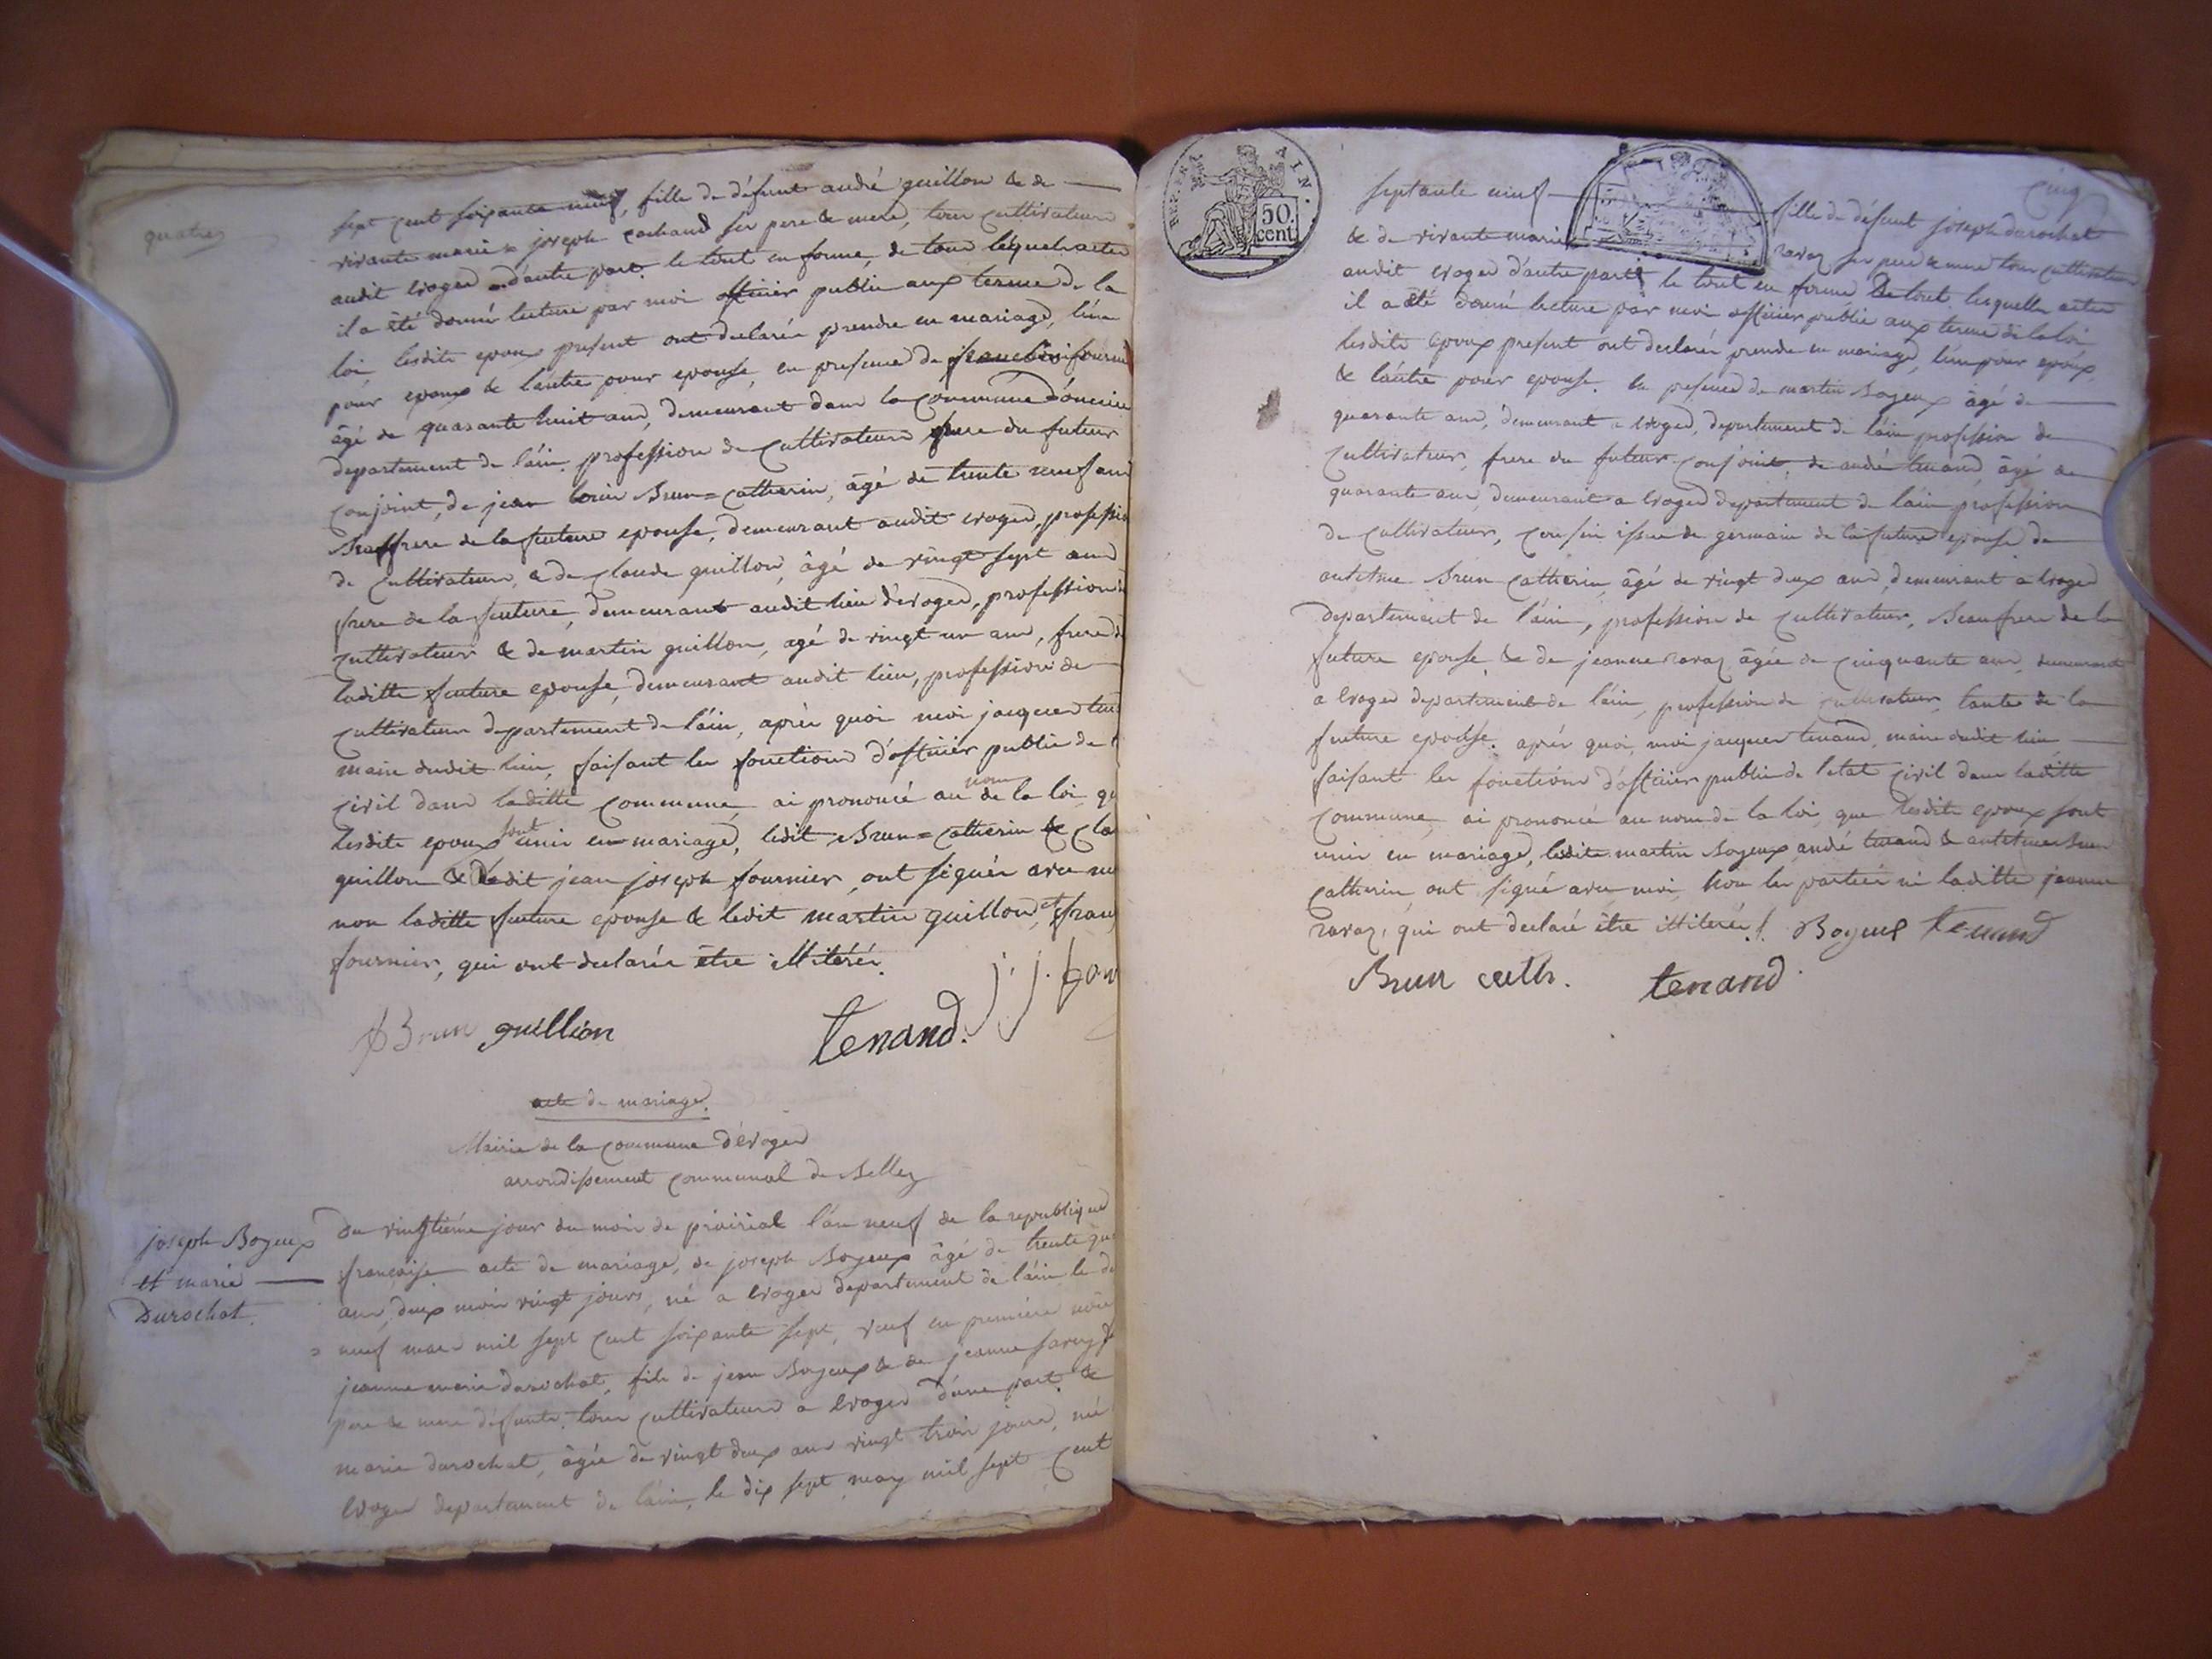 quatre
sept cent soixante neuf, fille de défunt andré guillon & de
vivante marie = joseph cochand ses pere & mere, tous cultivateurs
audit evoges d'autre part. le tout en forme, de tous lesquels actes
il a été donné lecture par moi officier public aux terme de la
loi lesdits epoux present ont declarés prendre en mariage, l'un
pour epoux & l'autre pour epouse, en presence de fournier
âgé de quarante huit ans, demeurant dans la commune
departement de l'ain, profession de cultivateur, frere du futur
conjoint, de jean louis Brun = catherin, âgé de trente neuf ans
Beaffrere de la future epouse, demeurant audit evoges, professio
de cultivateur, & de claude guillon, âgé de vingt sept ans
frere de la future, demeurant audit lieu d'evoges, profession
cultivateur & de martin guillon, agé de vingt un ans, frere
laditte future epouse, demeurant audit lieu, profession de
cultivateur departement de l'ain, après quoi moi jacques
maire dudit lieu, faisant les fonctions d'officier public de
civil dans laditte commune, ai prononcé au nom de la loi
lesdits epoux sont unis en mariage, ledit Brun = catherin & cla
guillon & ledit jean joseph fournier, ont signés avec
non laditte future epouse & ledit martin guillon, et
fournier, qui ont declarés être illiterés.
j. j. fou
Brun guillion tenand.
acte de mariage.
Mairie de la commune d'évoges
arrondissement communal de Belley
joseph Boyeux
et marie
Durochat.
Du vingtième jour du mois de prairial l'an neuf de la republique
française acte de mariage, de joseph Boyeux âgé de trente
ans deux mois vingt jours, né a evoges departement de l'ain le
neuf mars mil sept cent soixante sept, veuf en premiere
jeanne marie durochat, fils de jean Boyeux & de jeanne
pere & mere défunts, tous cultivateurs a evoges d'une part, &
marie durochat, âgée de vingt deux ans vingt trois jours, né
evoges departement de l'ain, le dix sept may mil sept cent
cinq
50.
cent.
septante neuf fille de défunt joseph durochat
& de vivante marie ravaz ses pere & mere tous cultivateurs
audit evoges d'autre part le tout en forme de tout lesquelles actes
il a été donné lecture par moi officier public aux terme de la loi
lesdits epoux present ont declarés prendre en mariage, l'un pour epoux,
& l'autre pour epouse. en presence de martin Boyeux âgé de
quarante ans, demeurant a evoges, departement de l'ain profession de
cultivateur, frere du futur conjoint, de andré tenand, âgé de
quarante ans, demeurant a evoges departement de l'ain profession
de cultivateur, cousin issue de germain de la future epouse de
Brun catherin, âgé de vingt deux ans, demeurant a evoges
departement de l'ain, profession de cultivateur, Beaufrere de la
future epouse, & de jeanne ravaz âgée de cinquante ans, demeurant
a evoges departement de l'ain, profession de cultivateur, tante de la
future epouse. après quoi, moi jacques tenand, maire dudit lieu
faisant les fonctions d'officier public de l'etat civil dans laditte
commune, ai prononcé au nom de la loi, que lesdits epoux sont
unis en mariage, lesdits martin Boyeux andré tenand &
catherin, ont signé avec moi, non les parties ni laditte jeanne
ravaz, qui ont declaré être illiterés. Boyeux tenand
Brun cath. tenand.